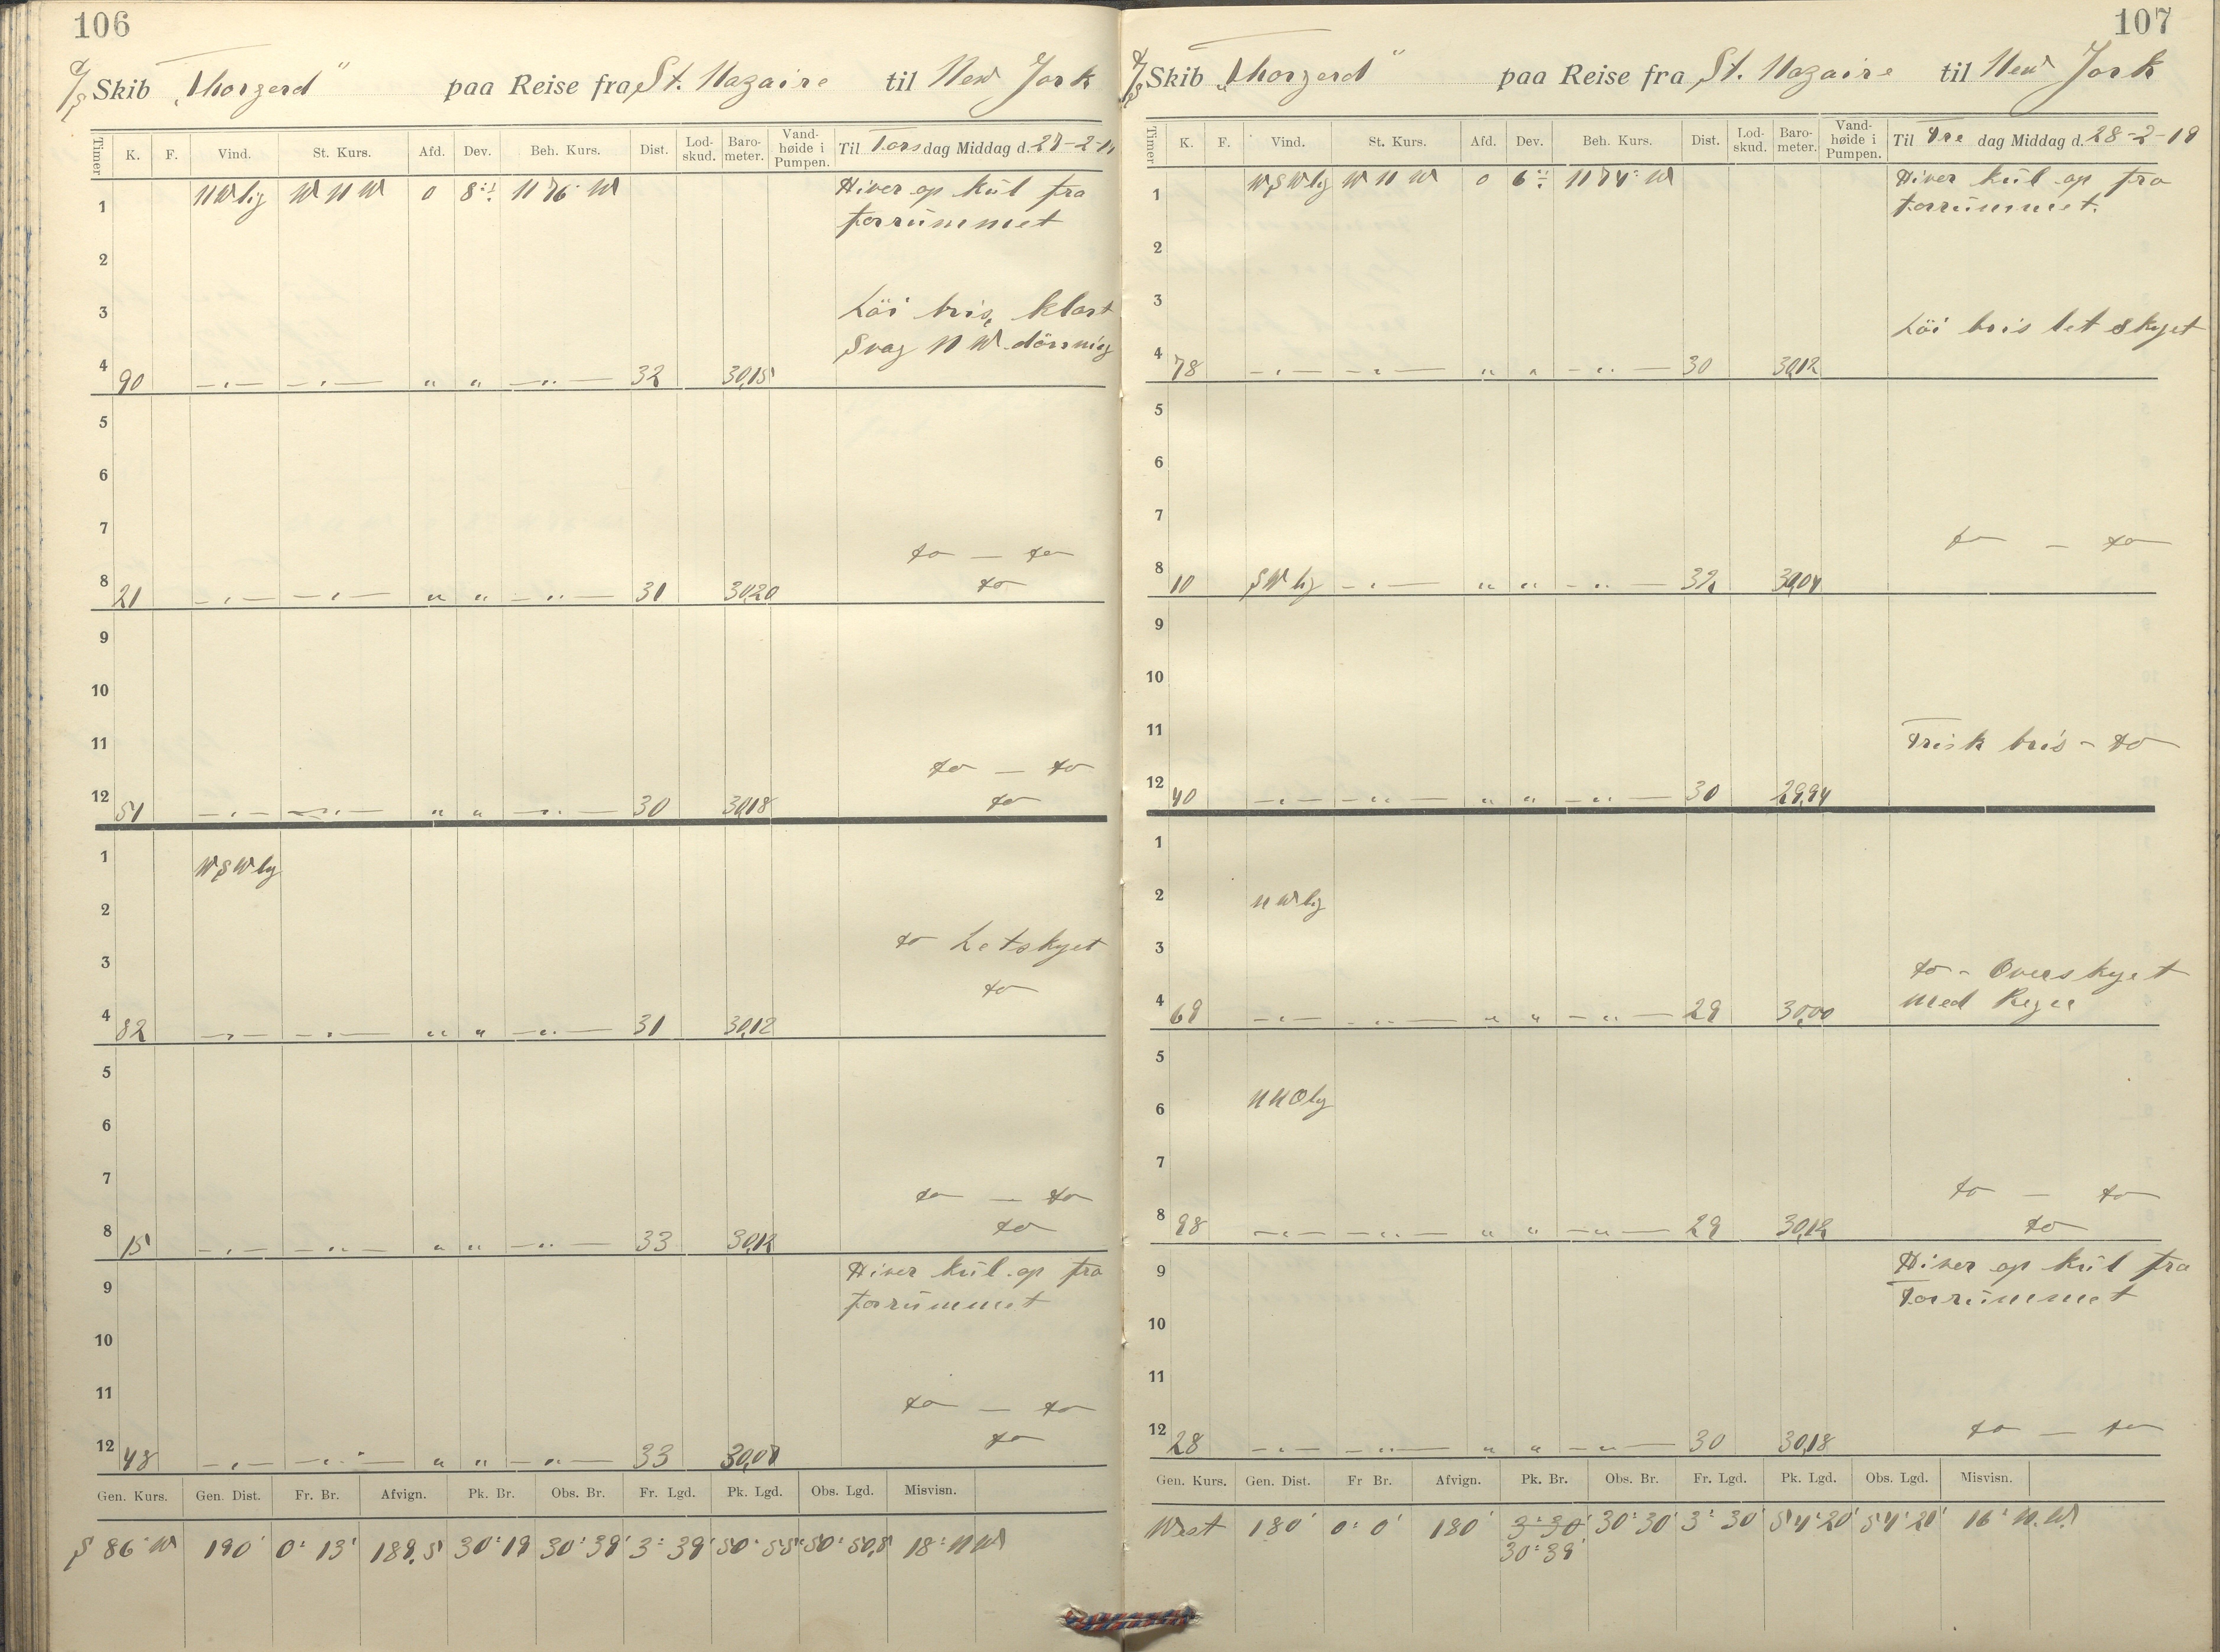 106
D/S Skib „Thorgerd" paa Reise fra St. Nazaire til New York
Timer K. F. Vind. St. Kurs. Afd. Dev. Beh. Kurs. Dist. Lod-skud. Baro-meter. Vand-høide i Pumpen. Til Torsdag Middag d. 27-2-19
1 NWlig WNW 0 8° N 76° W Hiver op kul fra
forrummet
2
3 Löi bris, klart
Svag NW dönnig
4 90 —„— —„— „ „ —„— 32 30,15
5
6
7 do — do
8 21 —„— —„— „ „ —„— 31 30,20 do
9
10
11 do — do
12 51 —„— —„— „ „ —„— 30 30,18 do
1 WSWlig
2
do Letskyet
3
do
4 82 —„— —„— „ „ —„— 31 30,12
5
6
7 do — do
8 15 —„— —„— „ „ —„— 33 30,12 do
Hiver kul op fra
9
forrummet
10
11 do — do
12 48 —„— —„— „ „ —„— 33 30,07 do
Gen. Kurs. Gen. Dist. Fr. Br. Afvign. Pk. Br. Obs. Br. Fr. Lgd. Pk. Lgd. Obs. Lgd. Misvisn.
S 86° W 190' 0° 13' 189,5 30° 19 30° 39' 3° 39' 50° 55' 50° 50,8 18° NW
107
D/S Skib „Thorgerd" paa Reise fra St. Nazaire til New York
Timer K. F. Vind. St. Kurs. Afd. Dev. Beh. Kurs. Dist. Lod-skud. Baro-meter. Vand-høide i Pumpen. Til Fredag Middag d. 28-2-19
1 WSWlig WNW 0 6° N 74° W Hiver kul op fra
forrummet.
2
3
Löi bris let skyet
4 78 —„— —„— „ „ —„— 30 30,12
5
6
7 do — do
8 10 SWlig —„— „ „ —„— 32 30,04
9
10
11 Frisk bris - do
12 40 —„— —„— „ „ —„— 30 29,94
1
2 NWlig
3
do - Overskyet
4 69 —„— —„— „ „ —„— 29 30,00 med Regn
5
6 NNOlig
7
do — do
8 98 —„— —„— „ „ —„— 29 30,12 do
9 Hiver op kul fra
Forrummet
10
11
12 28 —„— —„— „ „ —„— 30 30,18 do — do
Gen. Kurs. Gen. Dist. Fr Br. Afvign. Pk. Br. Obs. Br. Fr. Lgd. Pk. Lgd. Obs. Lgd. Misvisn.
West 180' 0° 0' 180' 3° 30' 30° 30' 3° 30 54° 20' 54° 21' 16° N.W.
30° 39'